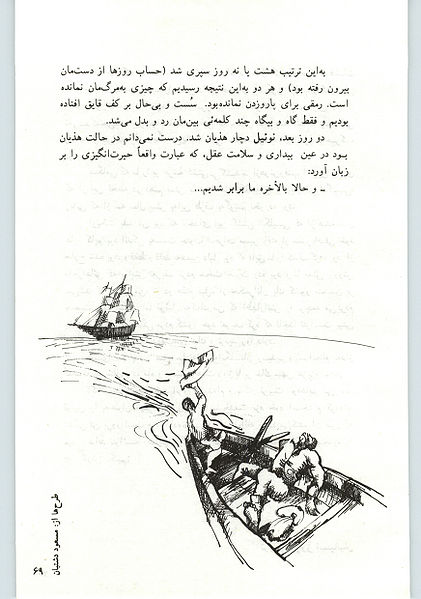 به‌این ترتیب هشت یا نه روز سپری شد (حساب روزها از دست‌مان
بیرون رفته بود) و هر دو به‌این نتیجه رسیدیم که چیزی به‌مرگ‌مان نمانده
است. رمقی برای پاروزدن نمانده‌بود. سُست و بی‌حال بر کف قایق افتاده
بودیم و فقط گاه و بیگاه چند کلمه‌ئی بین‌مان رد و بدل می‌شد.
دو روز بعد، نوئیل دچار هذیان شد. درست نمی‌دانم در حالت هذیان
بود در عین بیداری و سلامت عقل، که عبارت واقعاً حیرت‌انگیزی را بر
زبان آورد:
ـ و حالا بالأخره ما برابر شدیم...
طرح‌ها از: مسعود دشتبان
۶۹